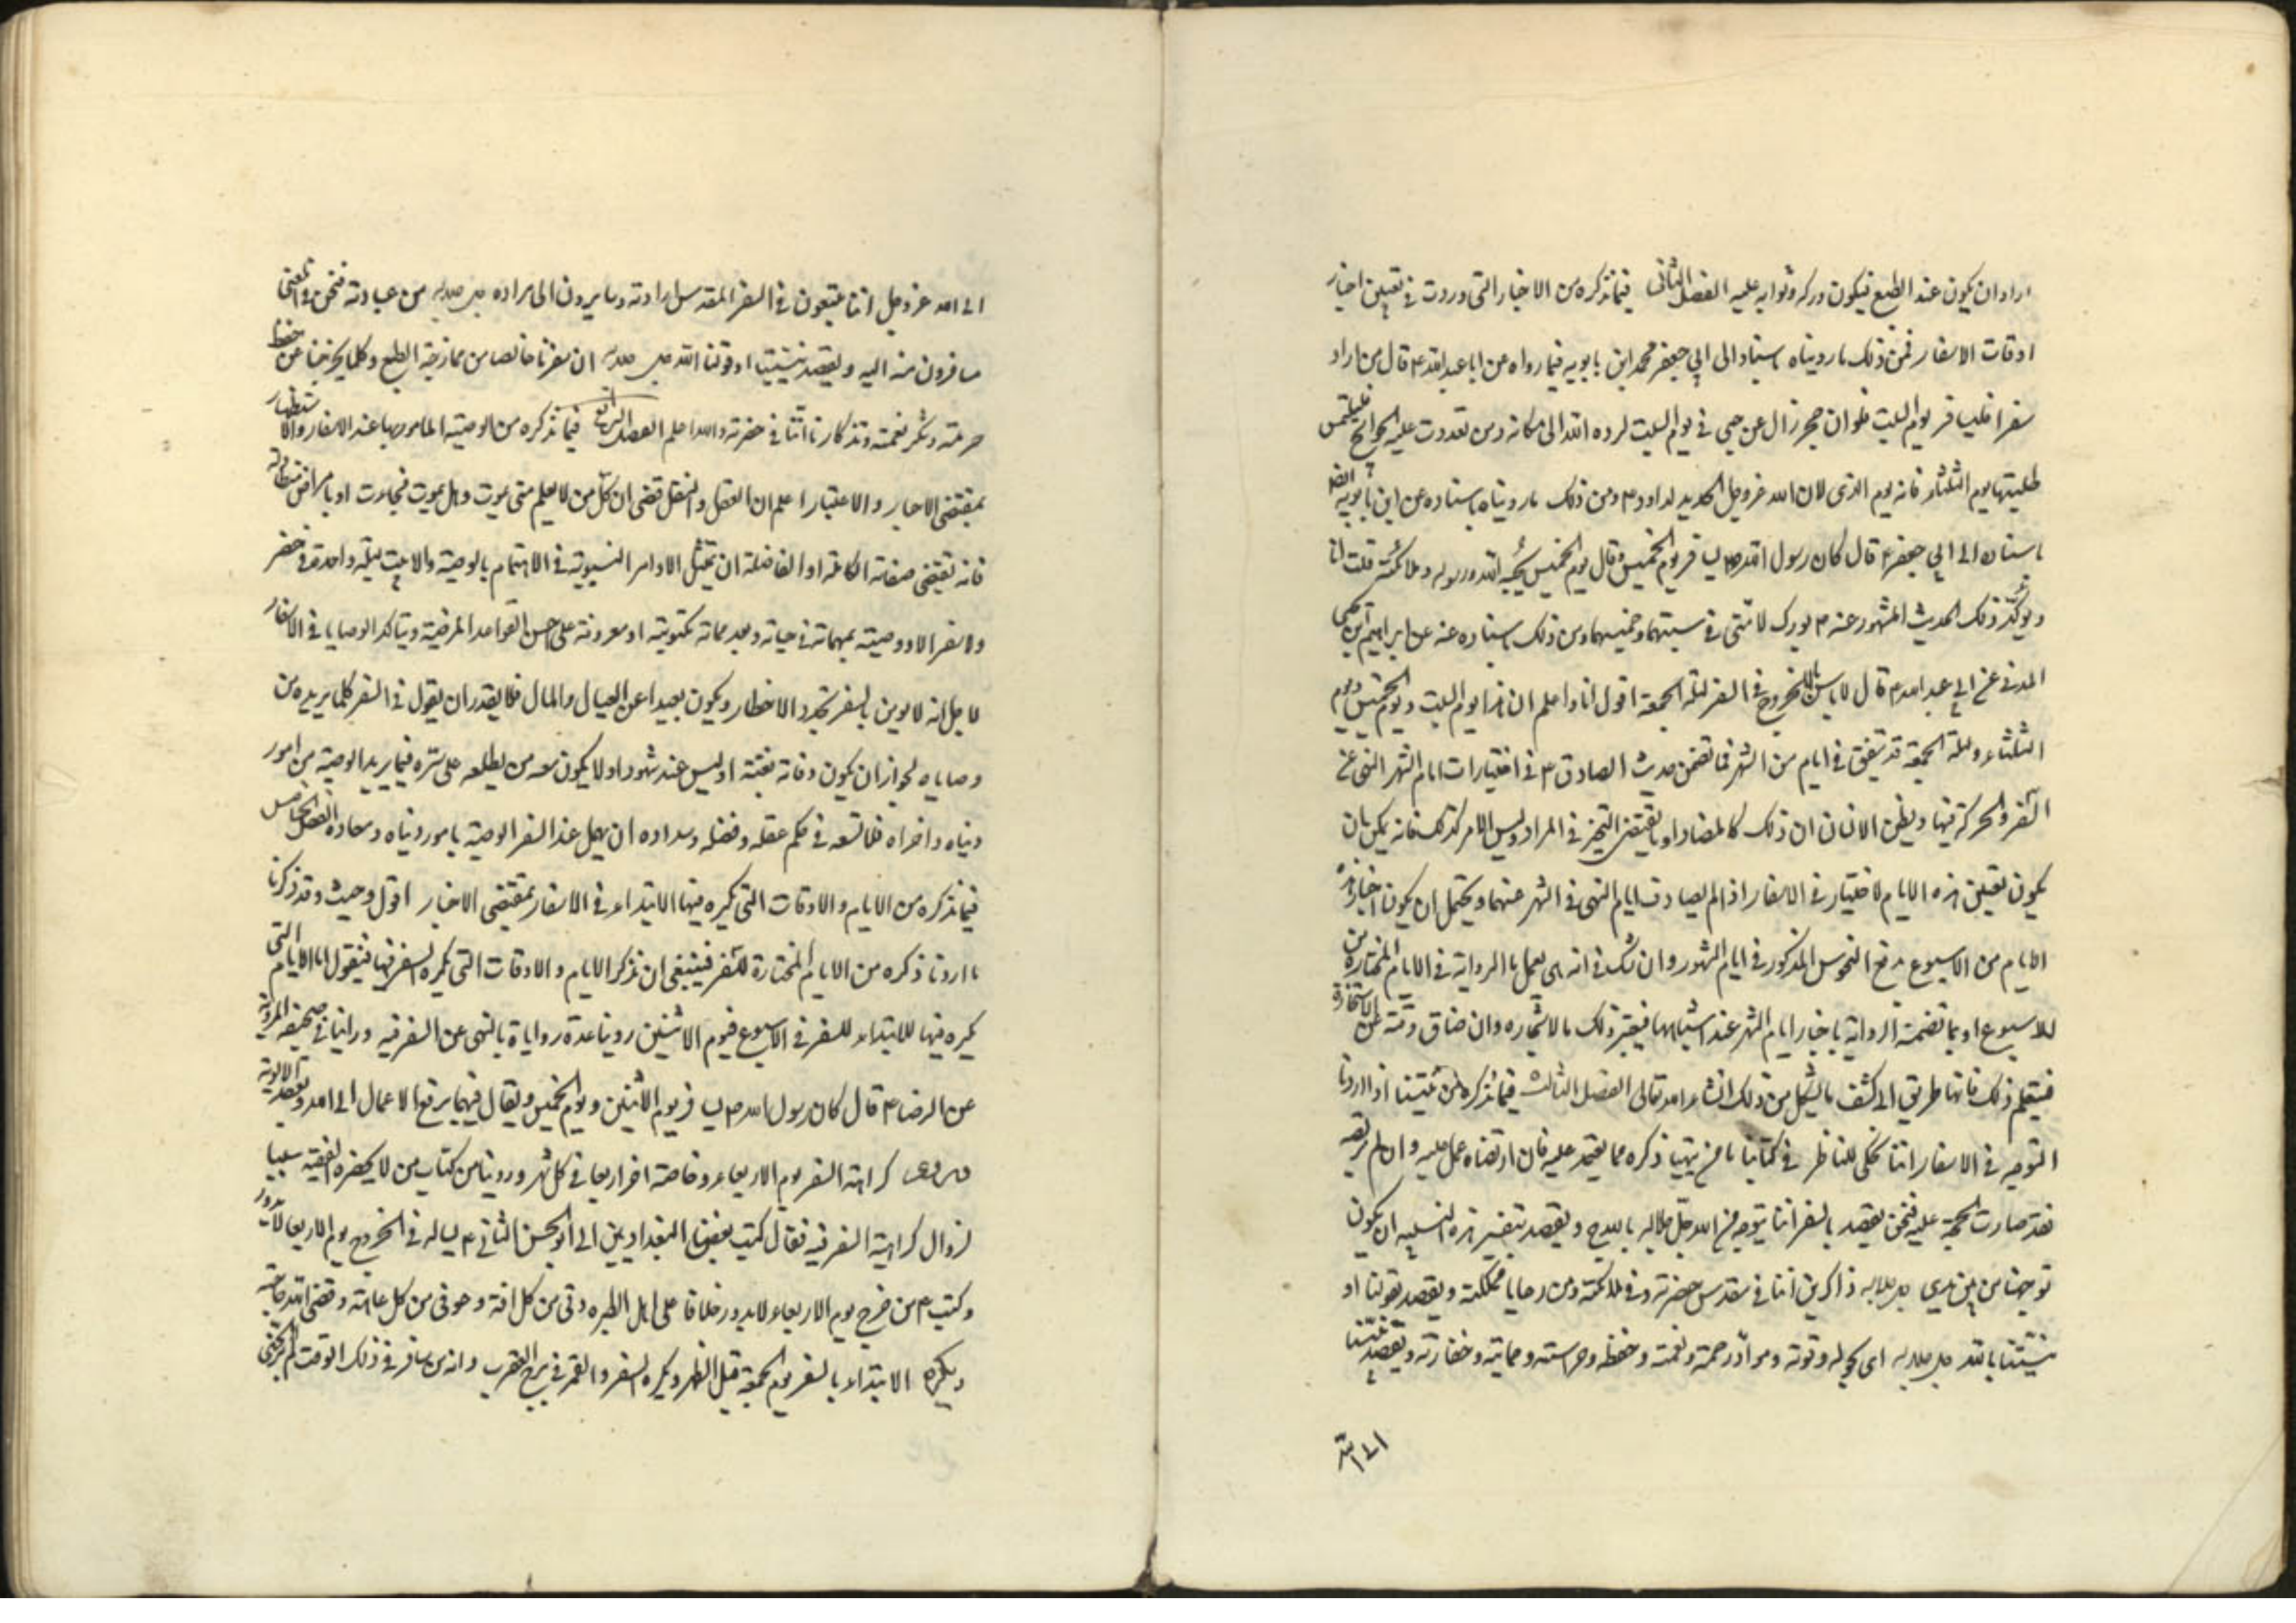 اراد ان يكون عند الطبع فيكون دركه وثوابه عليه الفصل الثاني فيما نذكره من الاخبار التي وردت في تعيين اختيار
اوقات الاسفار فمن ذلك ما رويناه باسناد الى ابي جعفر محمد ابن بابويه فيما رواه عن ابا عبد الله ع قال من اراد
سفرا فليسافر يوم السبت فلو ان حجر زال عن جبل في يوم السبت لرده الله الى مكانه ومن تعذرت عليه الحوائج فليلتمس
طلبتها يوم الثلثاء فانه يوم الذي الان الله عز وجل الحديد لداود ع ومن ذلك ما رويناه باسناده عن ابن بابويه ايضا
باسناده الى ابي جعفر ع قال كان رسول الله ص يسافر يوم الخميس وقال يوم الخميس يحبه الله ورسوله وملائكته قلت انا
ويؤكد ذلك الحديث المشهور عنه ع بورك لامتي في سبتها وخميسها ومن ذلك باسناده عنه عن ابراهيم ابن يحيى
المدني عن ابي عبد الله ع قال لا باس بالخروج في السفر ليلة الجمعة اقول انا واعلم ان هذا يوم السبت ويوم الخميس ويوم
الثلثاء وليلة الجمعة قد تتفق في ايام من الشهر فما تضمن حديث الصادق ع في اختيارات ايام الشهر النهي عن
السفر والحركة فيها ويظن الانسان ان ذلك كالمضاد او ما يقتضي التحيز في المراد وليس الامر كذلك فانه يمكن بان
يكون تعيين هذه الايام لاختيار في الاسفار اذا لم يصادف ايام النهي في الشهر عنها ويحتمل ان يكون اختيار هذه
الايام من الاسبوع يدفع النحوس المذكور في ايام الشهور وان شك في انه هل يعمل بالرواية في الايام المختارة من
الاسبوع او بما تضمنته الرواية باختيار ايام الشهر عند اشتباهها فيعتبر ذلك بالاستخاره وان ضاق وقته عن الاستخارة
فيستعلم ذلك فانها طريق الى كشف ما يشكل من ذلك انشاء الله تعالى الفصل الثالث فيما نذكره من نيتنا اذا اردنا
التوجه في الاسفار اننا نحكي للناظر في كتابنا ما نتهيا ذكره مما يعتمد عليه فان ارتضاه عمل عليه وان لم يرتضه
فقد صارت الحجة عليه فنحن نقصد بالسفر اننا نتوجه من الله جل جلاله بالله ج ونقصد بتفسير هذه النسبة ان يكون
توجهنا من بين يدي جل جلاله ذاكرين اننا في مقدس حضرته وفي ملائكته ومن رعايا مملكته ونقصد بقولنا او
نيتنا بالله جل جلاله اي بحوله وقوته ومواد رحمته ونعمته وحفظه وحراسته وحمايته وخفارته ونقصد بنيتنا
الى الله
الى الله عز وجل اننا متبعون في السفر المقدس لارادته وسايرون الى مراده جل جلاله من عبادته فنحن في المعنى
مسافرون منه اليه ونقصد بنيتنا او قولنا لله جل جلاله ان سفرنا خالصا من ممازجة الطبع وكلما يخرجنا عن حفظ
حرمته وشكر نعمته وتذكارنا اننا في حضرته والله اعلم الفصل الرابع فيما نذكره من الوصية المامور بها عند الاسفار والاستظهار
بمقتضى الاخبار والاعتبار اعلم ان العقل والنقل قضى ان كل من لا يعلم متى يموت وهل يموت فجاءت او بامراض متطاوله
فانه تقتضي صفاته الكاملة او الفاضلة ان يمتثل الاوامر النبوية في الاهتمام بالوصية والا يبيت ليلة واحدة في حضر
ولا سفر الا ووصيته بمهماته في حياته وبعد مماته مكتوبة او معروفة على احسن القواعد المرضية ويتاكد الوصايا في الاسفار
لاجل انه لا يومن بالسفر تجدد الاخطار ويكون بعيدا عن العيال والمال فلا يقدر ان يقول في السفر كلما يريده من
وصاياه لجواز ان يكون وفاته بغتة او ليس عند شهود او لا يكون معه من يطلعه على سره فيما يريد الوصية من امور
دنياه واخراه فلا تسعه في حكم عقله وفضله وسداده ان يهمل عند السفر الوصية بامور دنياه ومعاده الفصل الخامس
فيما نذكره من الايام والاوقات التي يكره فيها الابتداء في الاسفار بمقتضى الاخبار اقول وحيث وقد ذكرنا
ما اردنا ذكره من الايام المختارة للسفر فينبغي ان نذكر الايام والاوقات التي يكره السفر فيها فنقول اما الايام التي
يكره فيها الابتداء للسفر في الاسبوع فيوم الاثنين روينا عدة روايات بالنهي عن السفر فيه وراينا في صحيفة المروية
عن الرضا ع قال كان رسول الله ص يسافر يوم الاثنين ويوم الخميس ويقال فيهما يرفع الاعمال الى الله ويعقد الالوية
وروى كراهة السفر يوم الاربعاء وخاصة اخر اربعا في كل شهر وروينا من كتاب من لا يحضره الفقيه سببا
لزوال كراهية السفر فيه فقال كتب بعض البغداديين الى ابو الحسن الثاني ع يساله في الخروج يوم الاربعا لا يدور
وكتب ع من خرج يوم الاربعاء لا يدور خلافا على اهل الطيره وقي من كل افة وعوفي من كل عاهة وقضى الله حاجته
ويكره الابتداء بالسفر يوم الجمعة قبل الظهر ويكره السفر والقمر في برج العقرب وانه من سافر في ذلك الوقت لم ير الحسنى